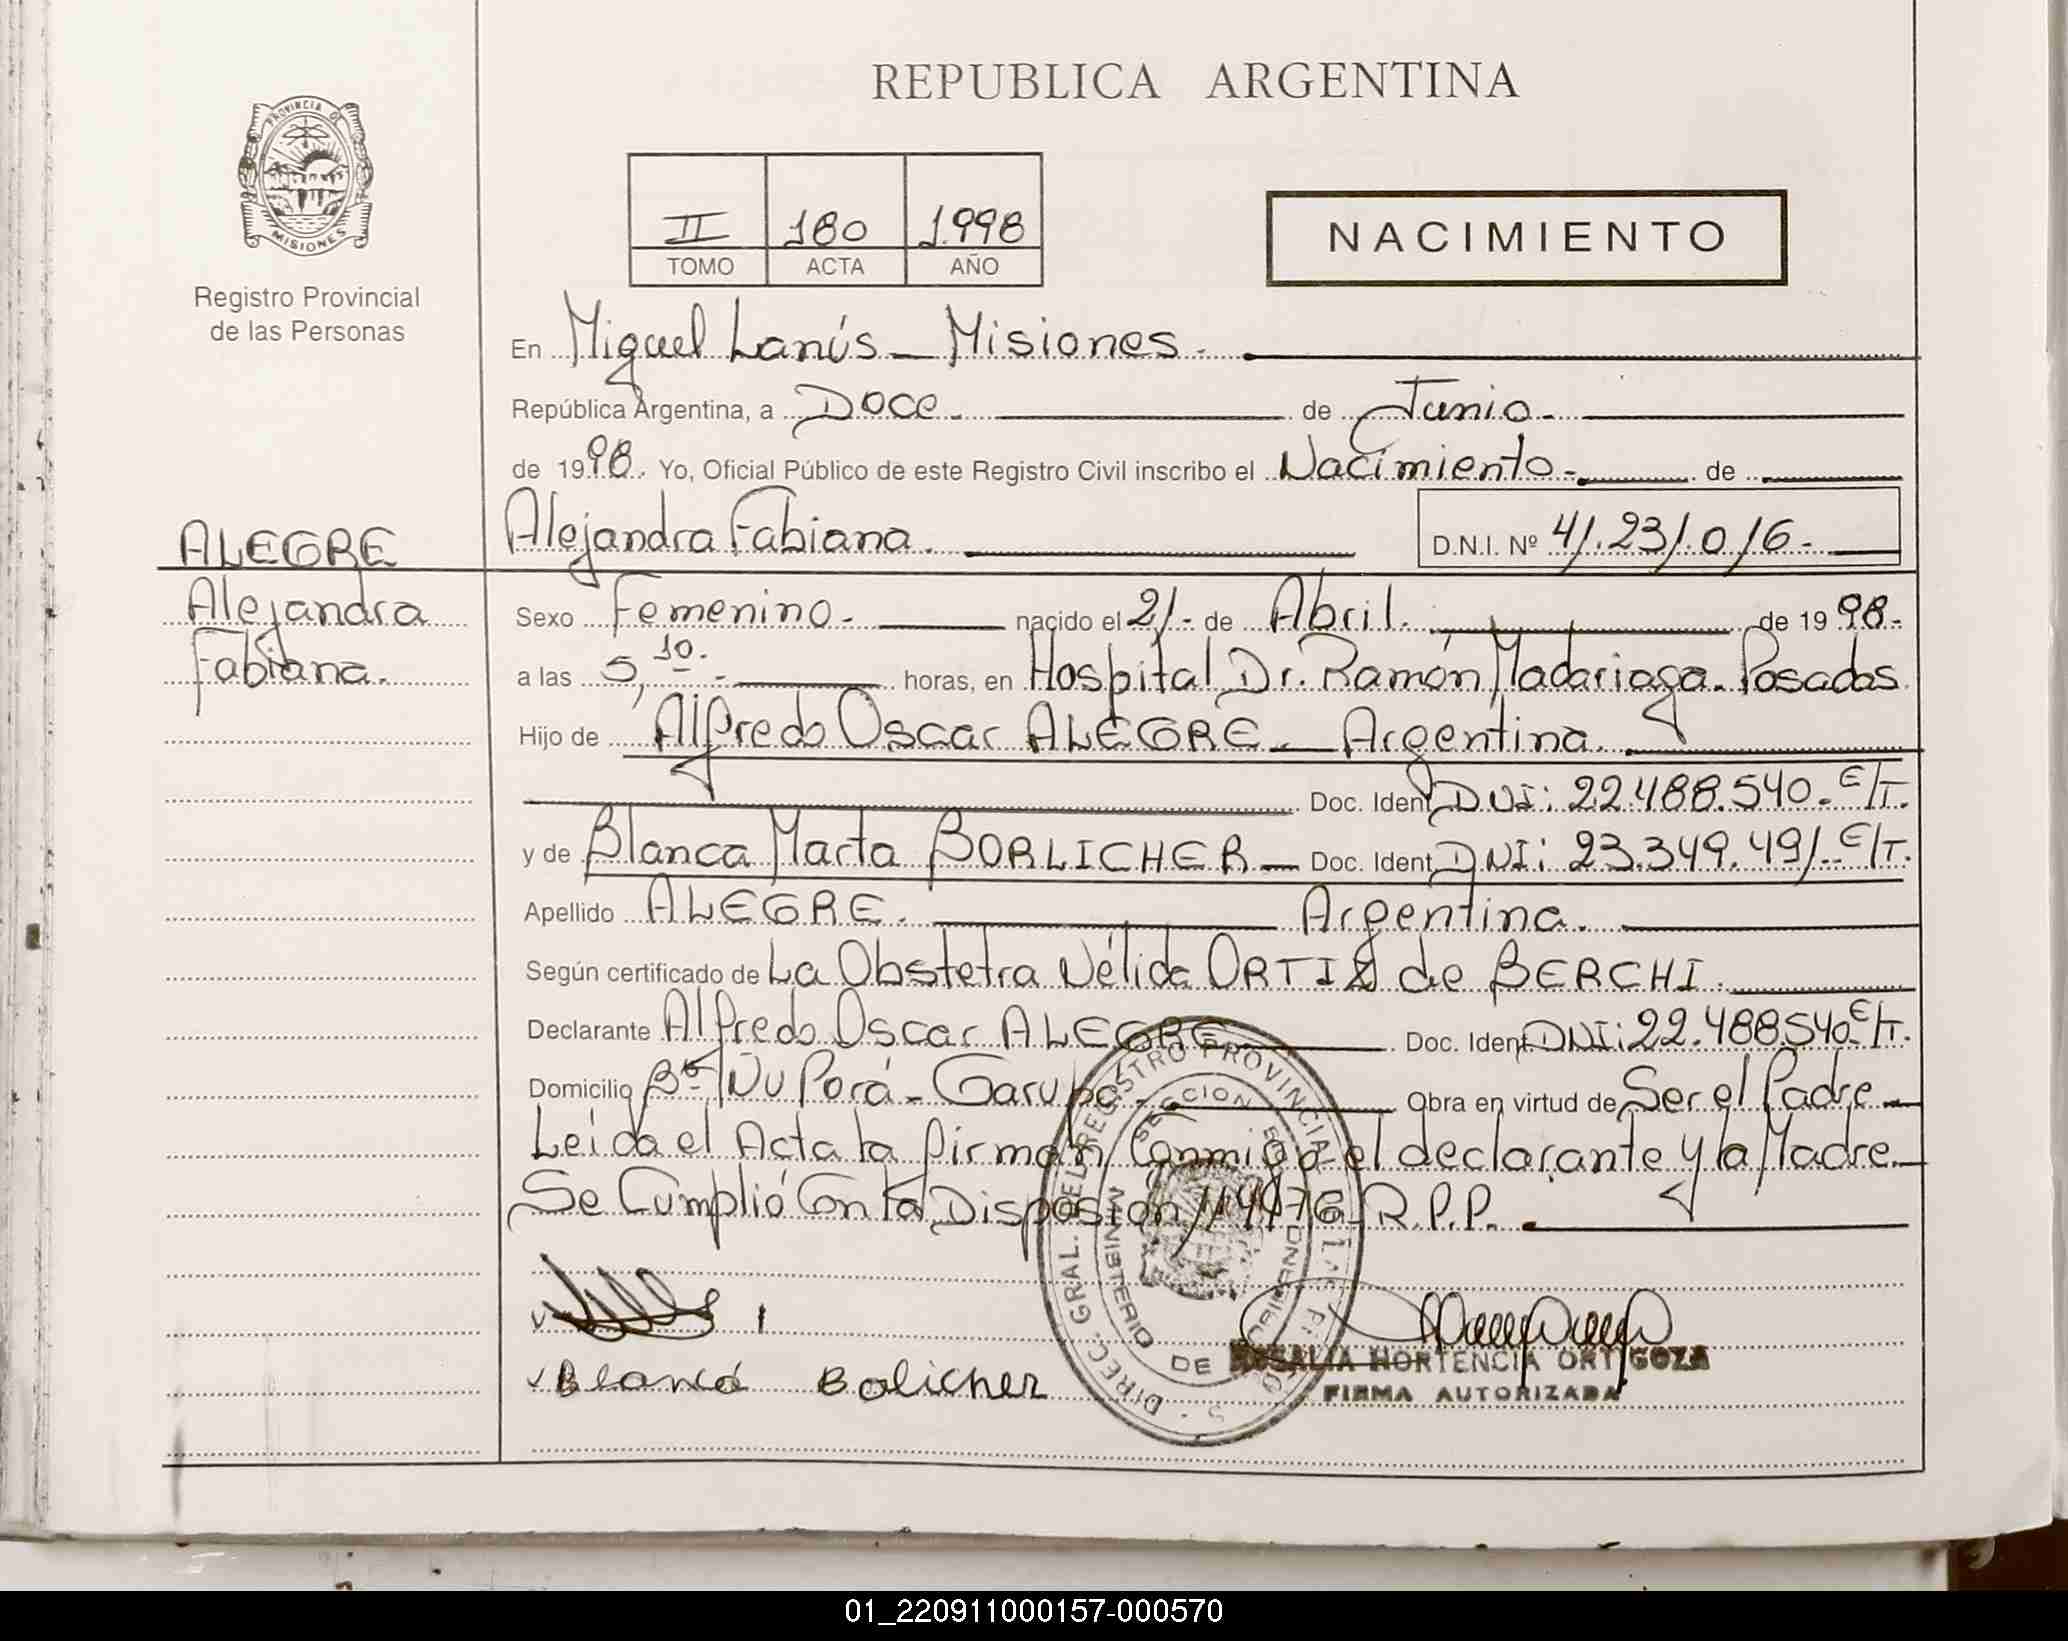 REPUBLICA ARGENTINA
PROVINCIA DE
MISIONES
Registro Provincial
de las Personas
II 180 1.998
TOMO ACTA AÑO
NACIMIENTO
En Miguel Lanús - Misiones.
República Argentina, a Doce. de Junio.
de 1998. Yo, Oficial Público de este Registro Civil inscribo el Nacimiento. de
ALEGRE Alejandra Fabiana. D.N.I. Nº 41.231.016.
Alejandra Sexo Femenino. nacido el 21. de Abril. de 1998.
Fabiana. a las 5,10. horas, en Hospital Dr. Ramón Madariaga. Posadas
Hijo de Alfredo Oscar ALEGRE. Argentina.
Doc. Ident. DNI: 22.488.540. E/T.
y de Blanca Marta BORLICHER Doc. Ident. DNI: 23.349.491. E/T.
Apellido ALEGRE. Argentina.
Según certificado de La Obstetra Nélida ORTIZ de BERCHI.
Declarante Alfredo Oscar ALEGRE. Doc. Ident. DNI: 22.488540. E/T.
Domicilio Bº Ñu Porá - Garupá. Obra en virtud de Ser el Padre
Leída el Acta la firman Conmigo el declarante y la Madre.
Se Cumplió Con la Disposión 114/76 R.P.P.
DIREC. GRAL. DEL REGISTRO PROVINCIAL
MINISTERIO DE GOBIERNO
Blanca Bolicher
ROSALIA HORTENCIA ORTIGOZA
FIRMA AUTORIZADA
01_220911000157-000570